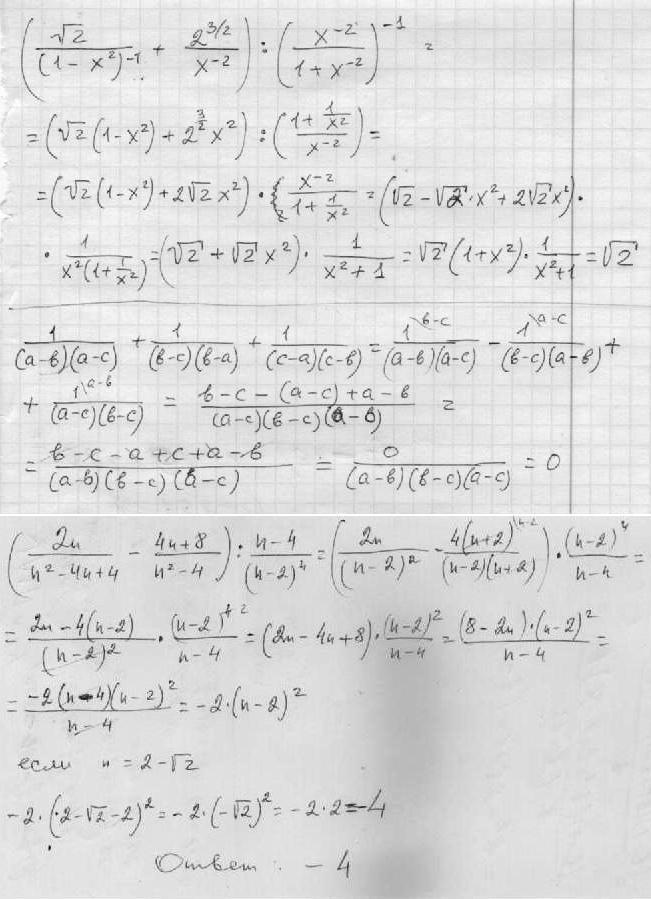 (√2/(1-x²)⁻¹ + 2^(3/2)/x⁻²) : (x⁻²/(1+x⁻²))⁻¹ =
= (√2(1-x²) + 2^(3/2) x²) : ((1+1/x²)/x⁻²) =
= (√2(1-x²) + 2√2 x²) · x⁻²/(1+1/x²) = (√2 - √2·x² + 2√2x²)·
· 1/(x²(1+1/x²)) = (√2 + √2 x²) · 1/(x²+1) = √2(1+x²)·1/(x²+1) = √2
1/((a-в)(a-c)) + 1/((в-c)(в-a)) + 1/((c-a)(c-в)) = 1\в-c/((a-в)(a-c)) - 1\a-c/((в-c)(a-в)) +
+ 1\a-в/((a-c)(в-c)) = (в-c-(a-c)+a-в)/((a-c)(в-c)(a-в)) =
= (в-c-a+c+a-в)/((a-в)(в-c)(a-c)) = 0/((a-в)(в-c)(a-c)) = 0
(2n/(n²-4n+4) - (4n+8)/(n²-4)) : (n-4)/(n-2)⁴ = (2n/(n-2)² - 4(n+2)\n-2/((n-2)(n+2))) · (n-2)⁴/(n-4) =
= (2n-4(n-2))/(n-2)² · (n-2)⁴ ²/(n-4) = (2n-4n+8)·(n-2)²/(n-4) = (8-2n)·(n-2)²/(n-4) =
= -2(n-4)(n-2)²/(n-4) = -2·(n-2)²
если n = 2-√2
-2·(2-√2-2)² = -2·(-√2)² = -2·2 = -4
Ответ: -4